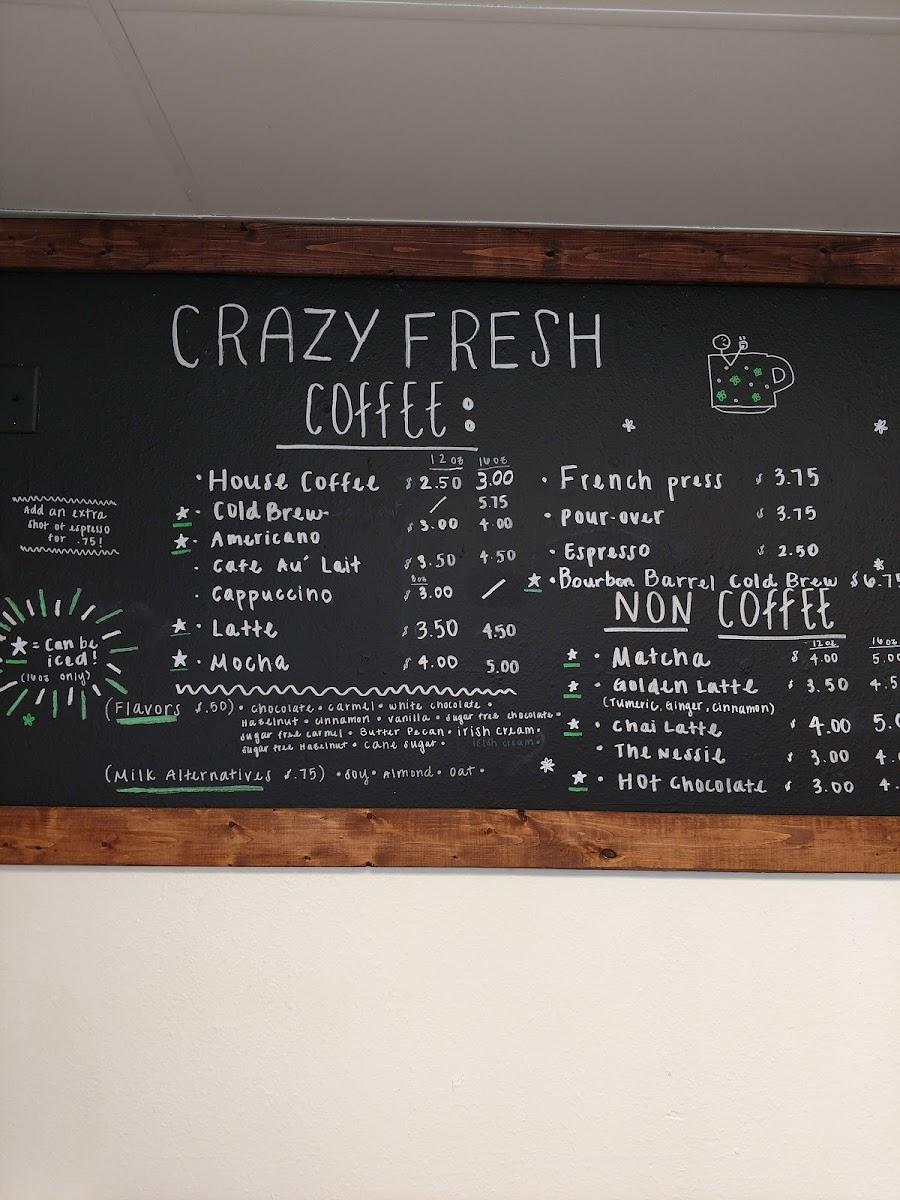 CRAZY FRESH
COFFEE:
12oz 16oz
• House Coffee $2.50 3.00
• Cold Brew / 5.75
• Americano $3.00 4.00
• Cafe Au' Lait $3.50 4.50
8oz
• Cappuccino $3.00 /
• Latte $3.50 4.50
• Mocha $4.00 5.00
Add an extra
shot of espresso
for .75!
★ = can be
iced!
(16oz only)
(Flavors $.50) • chocolate • carmel • white chocolate •
Hazelnut • cinnamon • vanilla • sugar free chocolate •
sugar free carmel • Butter Pecan • irish cream •
sugar free Hazelnut • cane sugar • irish cream •
(Milk Alternatives $.75) • soy • Almond • oat •
• French press $3.75
• Pour-over $3.75
• Espresso $2.50
• Bourbon Barrel Cold Brew $6.75
NON COFFEE
12oz 16oz
• Matcha $4.00 5.00
• Golden Latte $3.50 4.5
(Tumeric, Ginger, Cinnamon)
• Chai Latte $4.00 5.0
• The Nessie $3.00 4.
• Hot Chocolate $3.00 4.